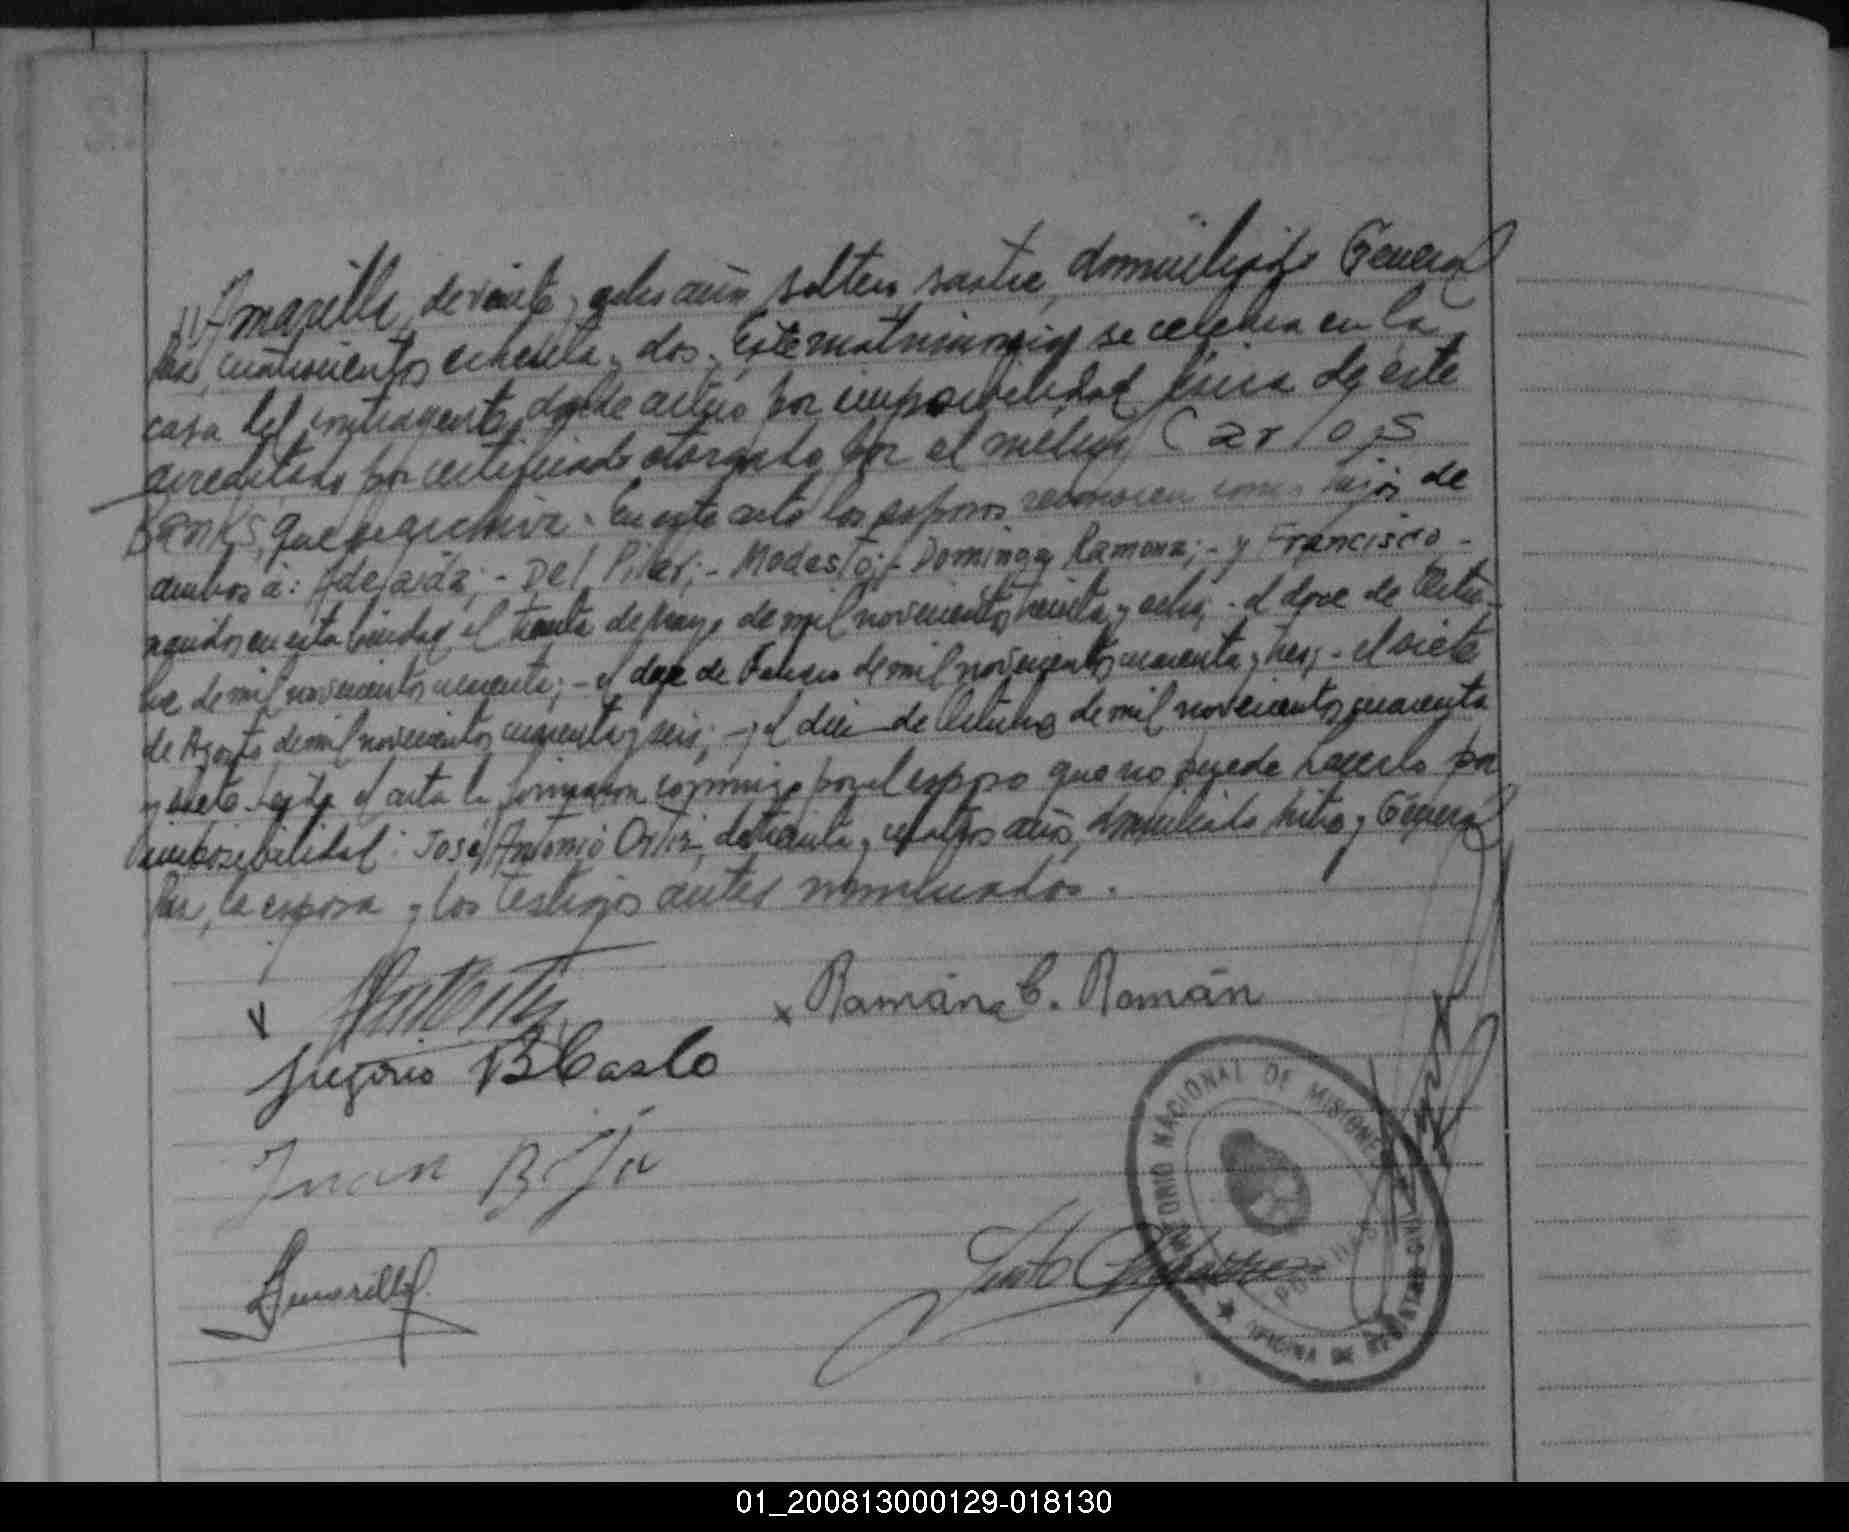 Amarilla, de veinte y ocho años, soltero, sastre, domiciliado General
Paz, cuatrocientos ochenta y dos. Este matrimonio se celebra en la
casa del contrayente, donde actúo por imposibilidad física de éste
acreditado por certificado otorgado por el médico Carlos
Banks, que se archiva. En este acto los esposos reconocen como hijos de
ambos á: Adelaida; - Del Pilar; - Modesto; - Dominga Ramona; - y Francisco -
nacidos en esta ciudad el treinta de mayo de mil novecientos treinta y ocho; - el doce de Octu-
bre de mil novecientos cuarenta; - el doce de Febrero de mil novecientos cuarenta y tres; - el siete
de Agosto de mil novecientos cuarenta y seis; - y el diez de Octubre de mil novecientos cuarenta
y siete. Leída el acta la firmaron conmigo por el esposo que no puede hacerlo por
imposibilidad: José Antonio Ortiz, de treinta y cuatro años, domiciliado Mitre y General
Paz, la esposa y los testigos antes nombrados.
Ramona C. Román
Gregorio B Casco
Juan B.
Amarilla
Justo
TERRITORIO NACIONAL DE MISIONES
POSADAS
OFICINA DE REGISTRO
01_200813000129-018130